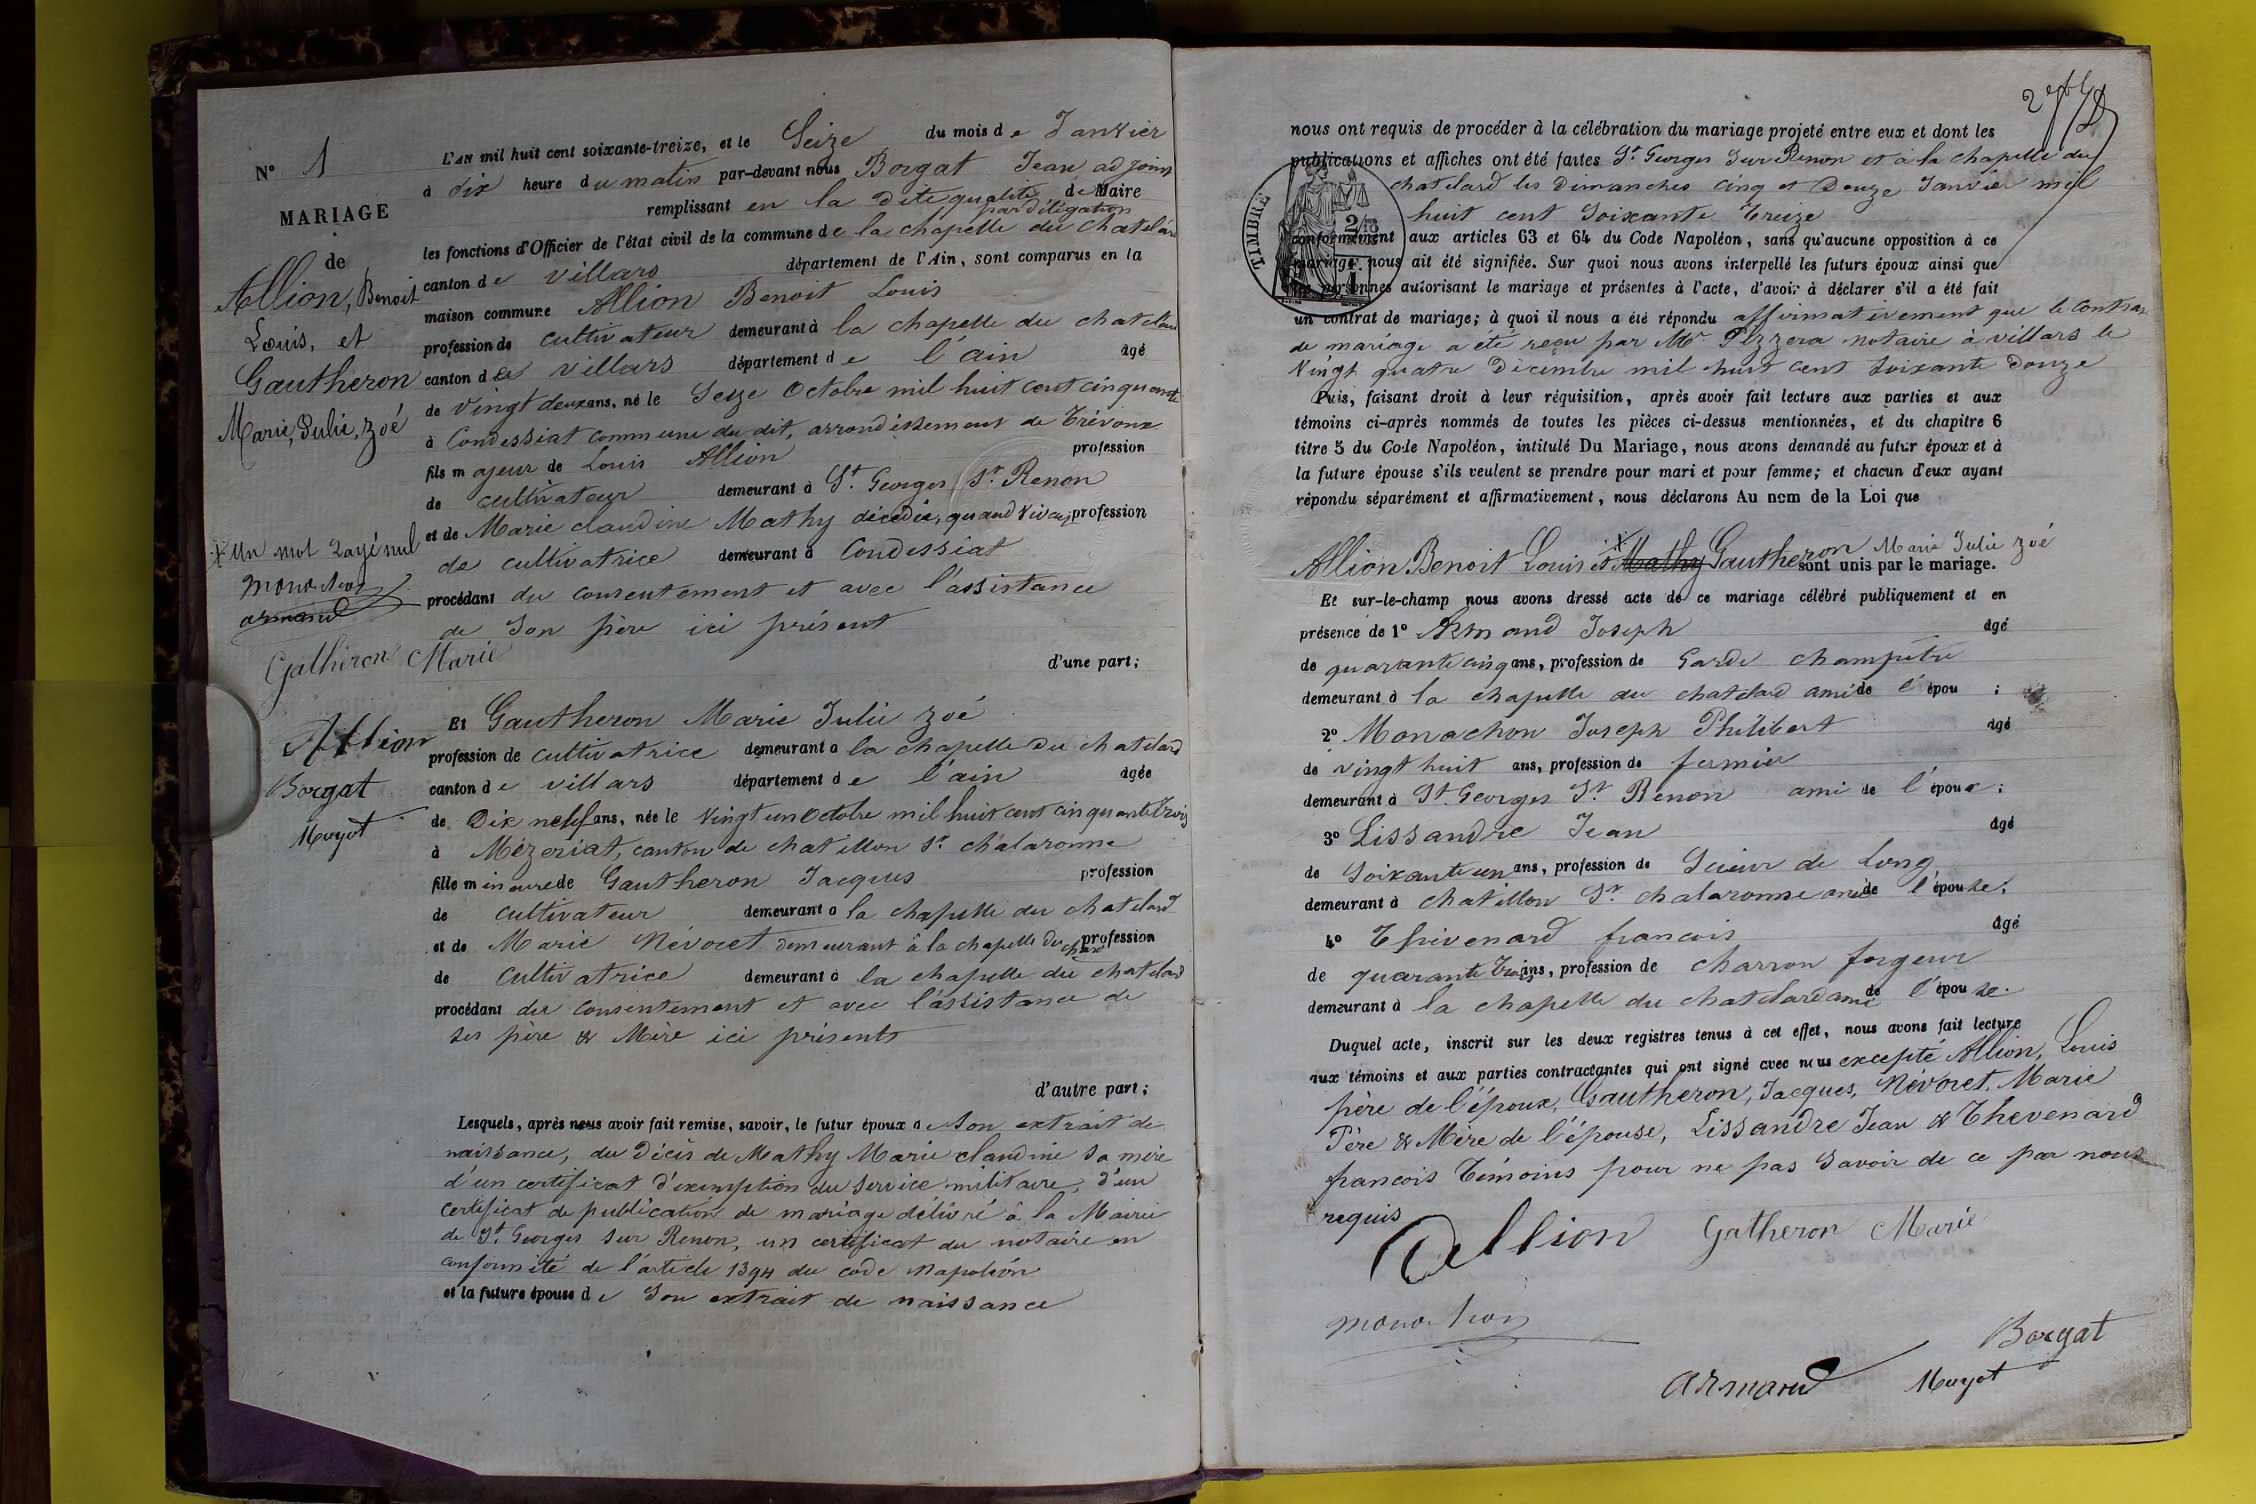 N° 1
MARIAGE
de
Allion, Benoit
Louis, et
Gautheron
Marie, Julie, Zoé
X Un mot rayé nul
monachon
armand
Gatheron Marie
Allion
Borgat
Muyot
L'AN mil huit cent soixante-treize, et le Seize du mois de Janvier
à dix heure du matin par-devant nous Borgat Jean adjoint
remplissant en la dite qualité de Maire
par délégation
les fonctions d'Officier de l'état civil de la commune de la chapelle du Chatelard
canton de villars département de l'Ain, sont comparus en la
maison commune Allion Benoit Louis
profession de cultivateur demeurant à la chapelle du chatelard
canton de villars département de l'ain âgé
de vingt deux ans, né le Seize Octobre mil huit cent cinquante
à Condessiat commune du dit, arrondissement de Trévoux
fils majeur de Louis Allion profession
de cultivateur demeurant à St. Georges Sr. Renon
et de Marie claudine Mathy décédée, quand vivait profession
de cultivatrice demeurant à Condessiat
procédant du consentement et avec l'assistance
de Son père ici présent
d'une part;
Et Gautheron Marie Julie Zoé
profession de cultivatrice demeurant à la chapelle du chatelard
canton de villars département de l'ain âgée
de Dix neuf ans, née le vingt un Octobre mil huit cent cinquante trois
à Mézeriat, canton de chatillon Sr. chalaronne
fille mineure de Gautheron Jacques profession
de cultivateur demeurant à la chapelle du chatelard
et de Marie Névoret demeurant à la chapelle du chard profession
de cultivatrice demeurant à la chapelle du chatelard
procédant du consentement et avec l'assistance de
ses père & Mère ici présents
d'autre part;
Lesquels, après nous avoir fait remise, savoir, le futur époux de Son extrait de
naissance, du Décès de Mathy Marie claudine sa mère
d'un certificat d'exemption du service militaire, d'un
certificat de publication de mariage délivré à la Mairie
de St. Georges sur Renon, un certificat du notaire en
conformité de l'article 1394 du code Napoléon
et la future épouse de Son extrait de naissance
nous ont requis de procéder à la célébration du mariage projeté entre eux et dont les
publications et affiches ont été faites St. Georges Sur Renon et à la chapelle du
chatelard les Dimanches cinq et Douze Janvier mil
huit cent Soixante Treize
TIMBRE
conformément aux articles 63 et 64 du Code Napoléon, sans qu'aucune opposition à ce
mariage nous ait été signifiée. Sur quoi nous avons interpellé les futurs époux ainsi que
les personnes autorisant le mariage et présentes à l'acte, d'avoir à déclarer s'il a été fait
un contrat de mariage; à quoi il nous a été répondu affirmativement que le Contrat
de mariage a été reçu par Mr Pezzera notaire à villars le
vingt quatre Décembre mil huit cent soixante Douze
Puis, faisant droit à leur réquisition, après avoir fait lecture aux parties et aux
témoins ci-après nommés de toutes les pièces ci-dessus mentionnées, et du chapitre 6
titre 5 du Code Napoléon, intitulé Du Mariage, nous avons demandé au futur époux et à
la future épouse s'ils veulent se prendre pour mari et pour femme; et chacun d'eux ayant
répondu séparément et affirmativement, nous déclarons Au nom de la Loi que
Allion Benoit Louis et X Mathy Gautheron Marie Julie Zoé
sont unis par le mariage.
Et sur-le-champ nous avons dressé acte de ce mariage célébré publiquement et en
présence de 1° Armand Joseph âgé
de quarante cinq ans, profession de Garde champêtre
demeurant à la chapelle du chatelard ami de l'épou ;
2° Monachon Joseph Philibert âgé
de vingt huit ans, profession de fermier
demeurant à St. Georges Sr. Renon ami de l'époux ;
3° Lissandre Jean âgé
de Soixante un ans, profession de Scieur de Long
demeurant à chatillon Sr. chalaronne ami de l'épouse.
4° Thévenard francois âgé
de quarante trois ans, profession de charron forgeur
demeurant à la chapelle du chatelard ami de l'épouse.
Duquel acte, inscrit sur les deux registres tenus à cet effet, nous avons fait lecture
aux témoins et aux parties contractantes qui ont signé avec nous excepté Allion, Louis
père de l'époux, Gautheron, Jacques, Névoret, Marie
Père & Mère de l'épouse, Lissandre Jean & Thevenard
francois Témoins pour ne pas Savoir de ce par nous
requis
Allion Gatheron Marie
monachon
Borgat
armand Muyot